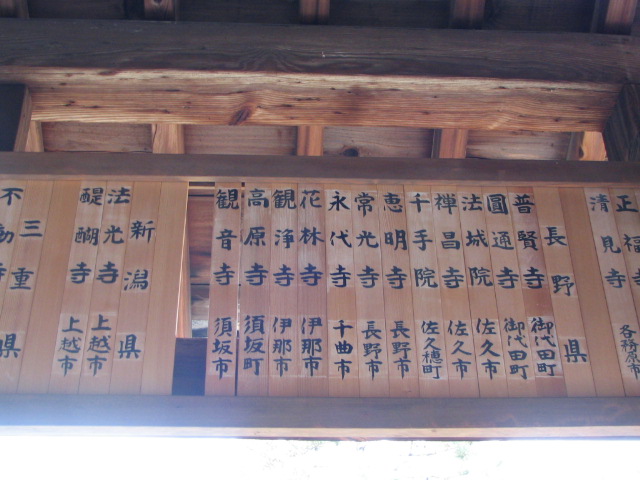 正福寺 各務原市
清見寺
長野県
普賢寺 御代田町
圓通寺 御代田町
法城院 佐久市
禅昌寺 佐久市
千手院 佐久穂町
恵明寺 長野市
常光寺 長野市
永代寺 千曲市
花林寺 伊那市
観浄寺 伊那市
高原寺 須坂町
観音寺 須坂市
新潟県
法光寺 上越市
醍醐寺 上越市
三重県
不動寺